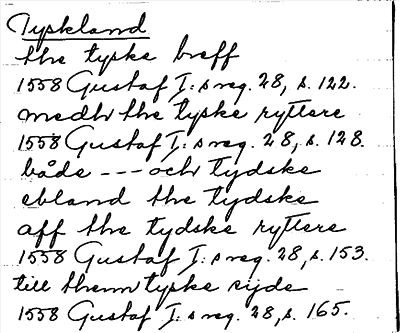 Tyskland
the tyske breff
1558 Gustaf I:s reg. 28, s. 122.
medh the tyske ryttere
1558 Gustaf I:s reg. 28, s. 128.
både --- och tydske
ebland the tydske
aff the tydske ryttere
1558 Gustaf I:s reg. 28, s. 153.
till them tyske sijde
1558 Gustaf I:s reg. 28, s. 165.